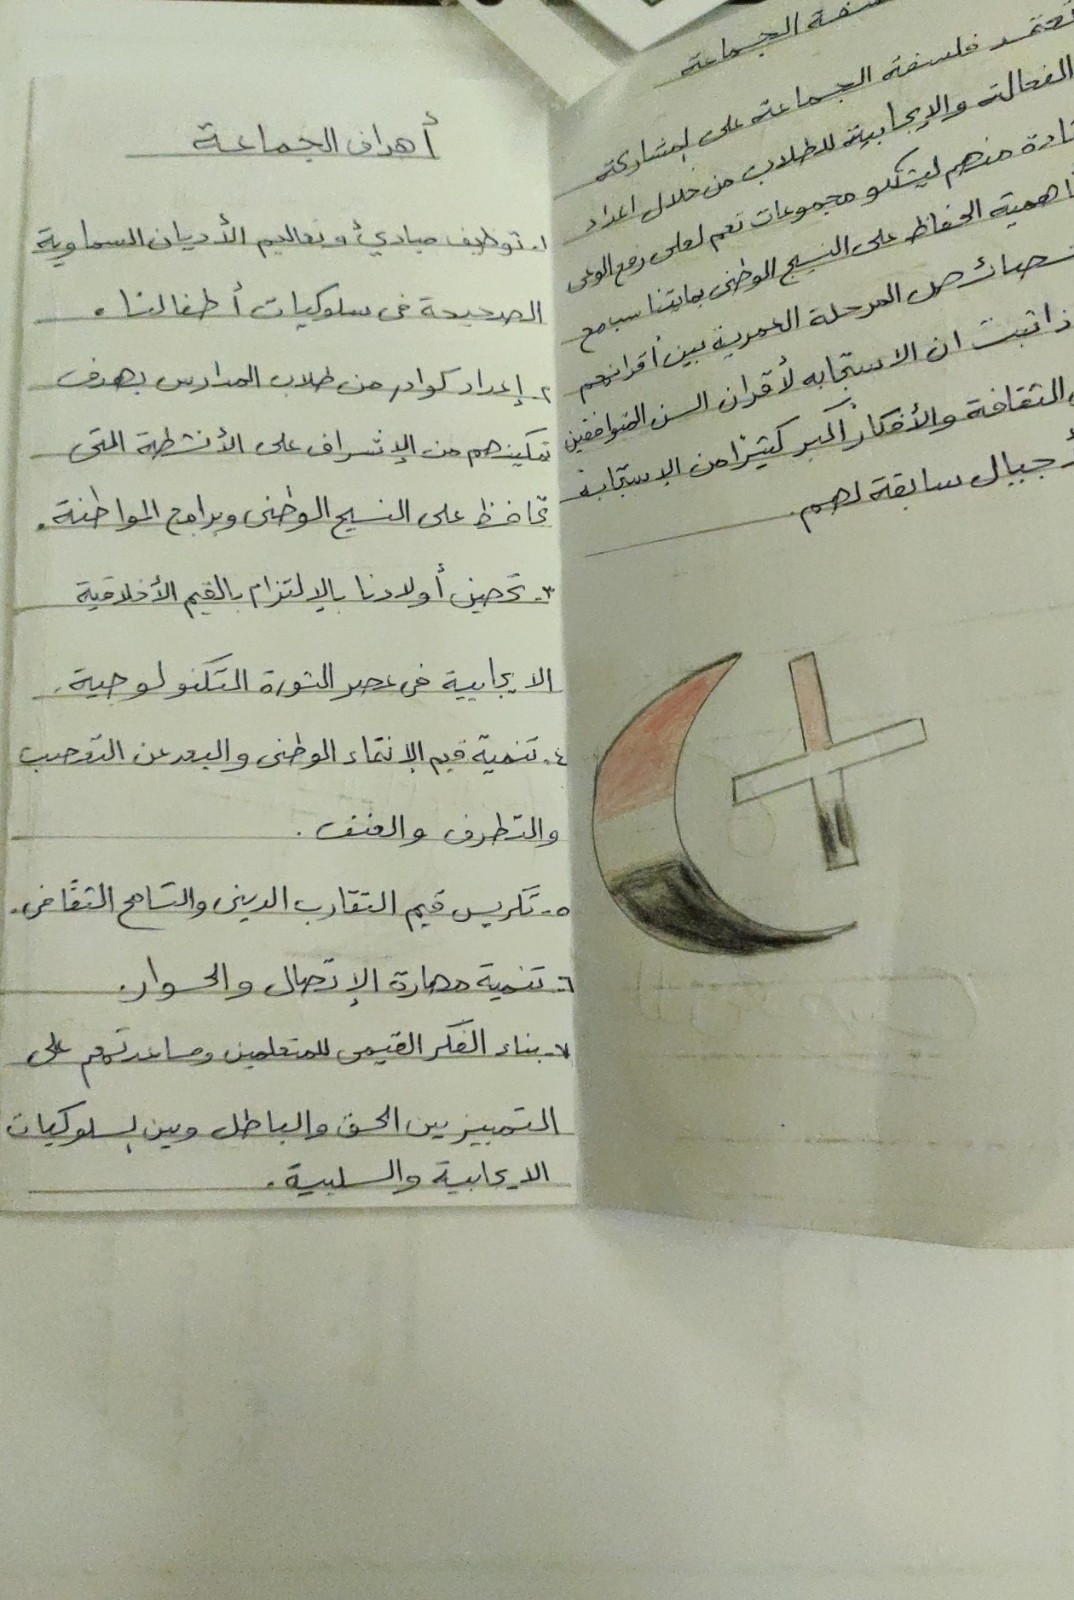 فلسفة الجماعة
تعتمد فلسفة الجماعة على المشاركة
الفعالة والإيجابية للطلاب من خلال اعداد
قادة منهم ليشكلو مجموعات تعمل على رفع الوعى
أهمية الحفاظ على النسيج الوطنى بما يتناسب مع
خصائص المرحلة العمرية بين أقرانهم
ذا ثبت ان الاستجابه لأقران السن المتوافقين
الثقافة والأفكار أكبر كثيرًا من الإستجابة
لأجيال سابقة لهم.
أهداف الجماعة
١- توظيف مبادئ وتعاليم الأديان السماوية
الصحيحة فى سلوكيات أطفالنا.
٢- إعداد كوادر من طلاب المدارس بهدف
تمكينهم من الإشراف على الأنشطة التى
تحافظ على النسيج الوطنى وبرامج المواطنة.
٣- تحصين أولادنا بالإلتزام بالقيم الأخلاقية
الايجابية فى عصر الثورة التكنولوجية.
٤- تنمية قيم الإنتماء الوطنى والبعد عن التعصب
والتطرف والعنف.
٥- تكريس قيم التقارب الدينى والتسامح الثقافى.
٦- تنمية مهارة الإتصال والحوار.
٧- بناء الفكر القيمى للمتعلمين ومساعدتهم على
التمييز بين الحق والباطل وبين السلوكيات
الايجابية والسلبية.